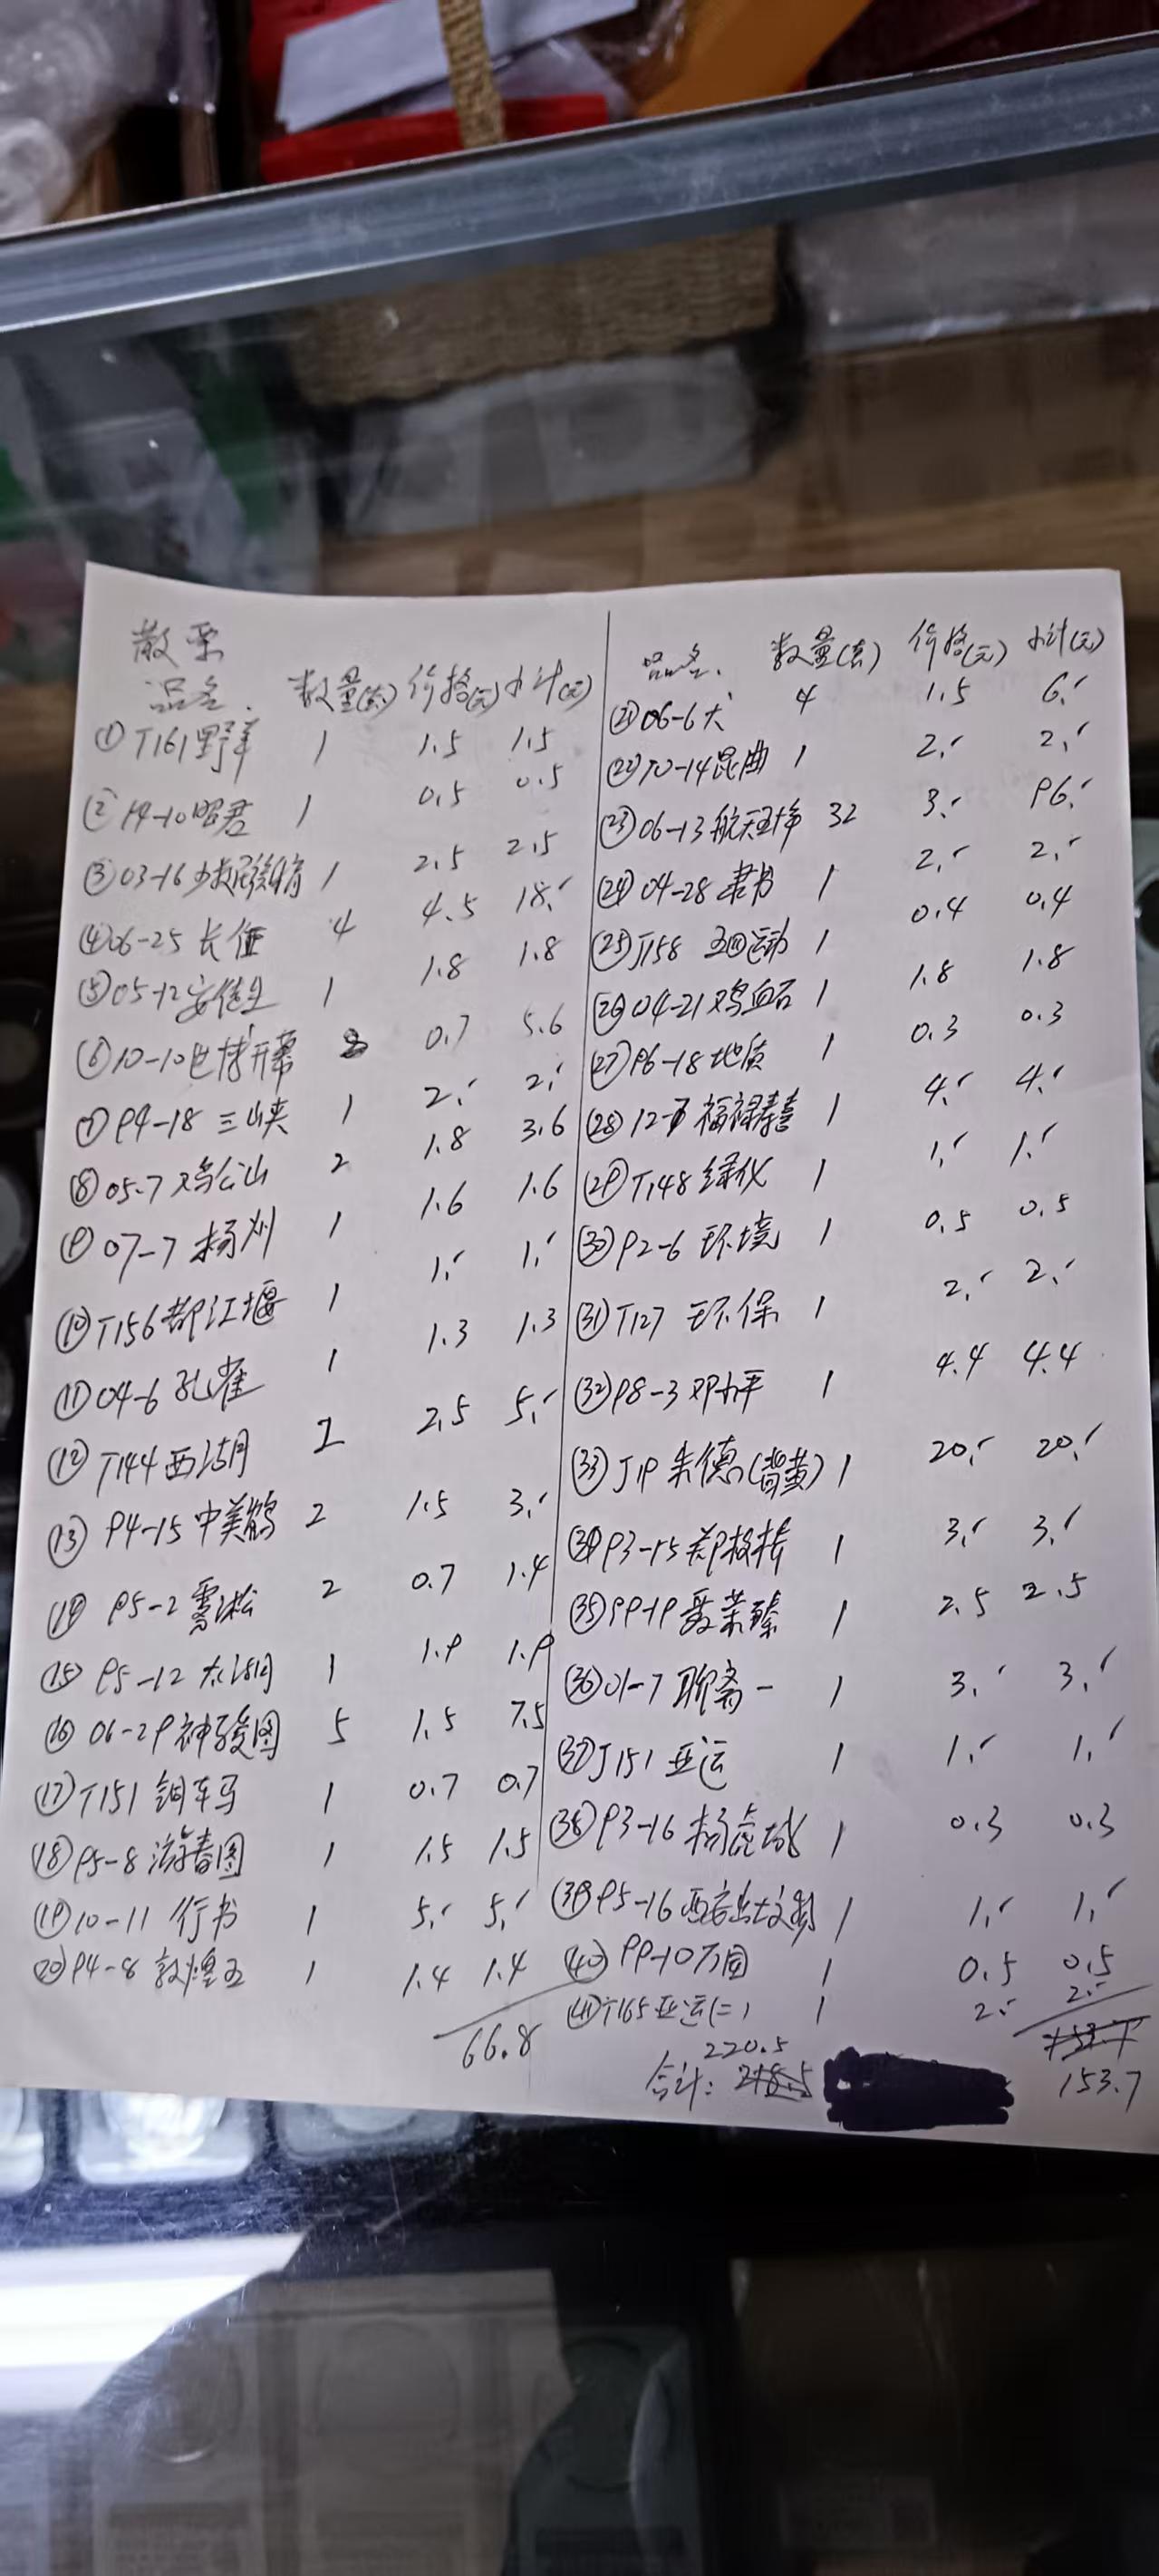 散票
品名 数量(套) 价格(元) 小计(元)
① T161野羊 1 1.5 1.5
② 94-10昭君 1 0.5 0.5
③ 03-16 1 2.5 2.5
④ 06-25 长征 4 4.5 18.-
⑤ 05-12安徒生 1 1.8 1.8
⑥ 10-10世博开幕 8 0.7 5.6
⑦ 94-18 三峡 1 2.- 2.-
⑧ 05-7 鸡公山 2 1.8 3.6
⑨ 07-7 杨州 1 1.6 1.6
⑩ T156都江堰 1 1.- 1.-
⑪ 04-6 孔雀 1 1.3 1.3
⑫ T144西湖 2 2.5 5.-
⑬ 94-15 中美鹤 2 1.5 3.-
⑭ 95-2 雾淞 2 0.7 1.4
⑮ 95-12 太湖 1 1.9 1.9
⑯ 06-29神骏图 5 1.5 7.5
⑰ T151 铜车马 1 0.7 0.7
⑱ 95-8 游春图 1 1.5 1.5
⑲ 10-11 行书 1 5.- 5.-
⑳ 94-8 敦煌五 1 1.4 1.4
66.8
品名. 数量(套) 价格(元) 小计(元)
㉑ 06-6犬 4 1.5 6.-
㉒ 10-14昆曲 1 2.- 2.-
㉓ 06-13航天 32 3.- 96.-
㉔ 04-28 隶书 1 2.- 2.-
㉕ J158 五四运动 1 0.4 0.4
㉖ 04-21鸡血石 1 1.8 1.8
㉗ 96-18地质 1 0.3 0.3
㉘ 12-7福禄寿喜 1 4.- 4.-
㉙ T148绿化 1 1.- 1.-
㉚ 92-6 环境 1 0.5 0.5
㉛ T127 环保 1 2.- 2.-
㉜ 98-3 邓小平 1 4.4 4.4
㉝ J19 朱德(背黄) 1 20.- 20.-
㉞ 93-15郑板桥 1 3.- 3.-
㉟ 99-19聂荣臻 1 2.5 2.5
㊱ 01-7 聊斋一 1 3.- 3.-
㊲ J151 亚运 1 1.- 1.-
㊳ 93-16 杨虎城 1 0.3 0.3
㊴ 95-16 西安出土文物 1 1.- 1.-
㊵ 99-10万国 1 0.5 0.5
㊶ T165亚运(二) 1 2.- 2.-
153.7
220.5
合计: 218.5